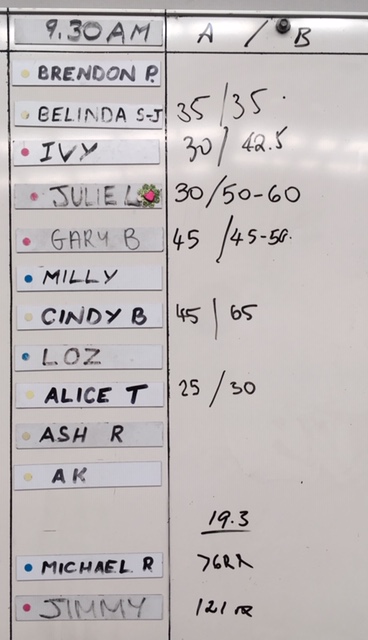 9.30 AM A / B
BRENDON P.
BELINDA S-J 35 / 35
IVY 30 / 42.5
JULIE L 30/50-60
GARY B 45 / 45-50
MILLY
CINDY B 45 | 65
LOZ
ALICE T 25 / 30
ASH R
AK
19.3
MICHAEL R
JIMMY